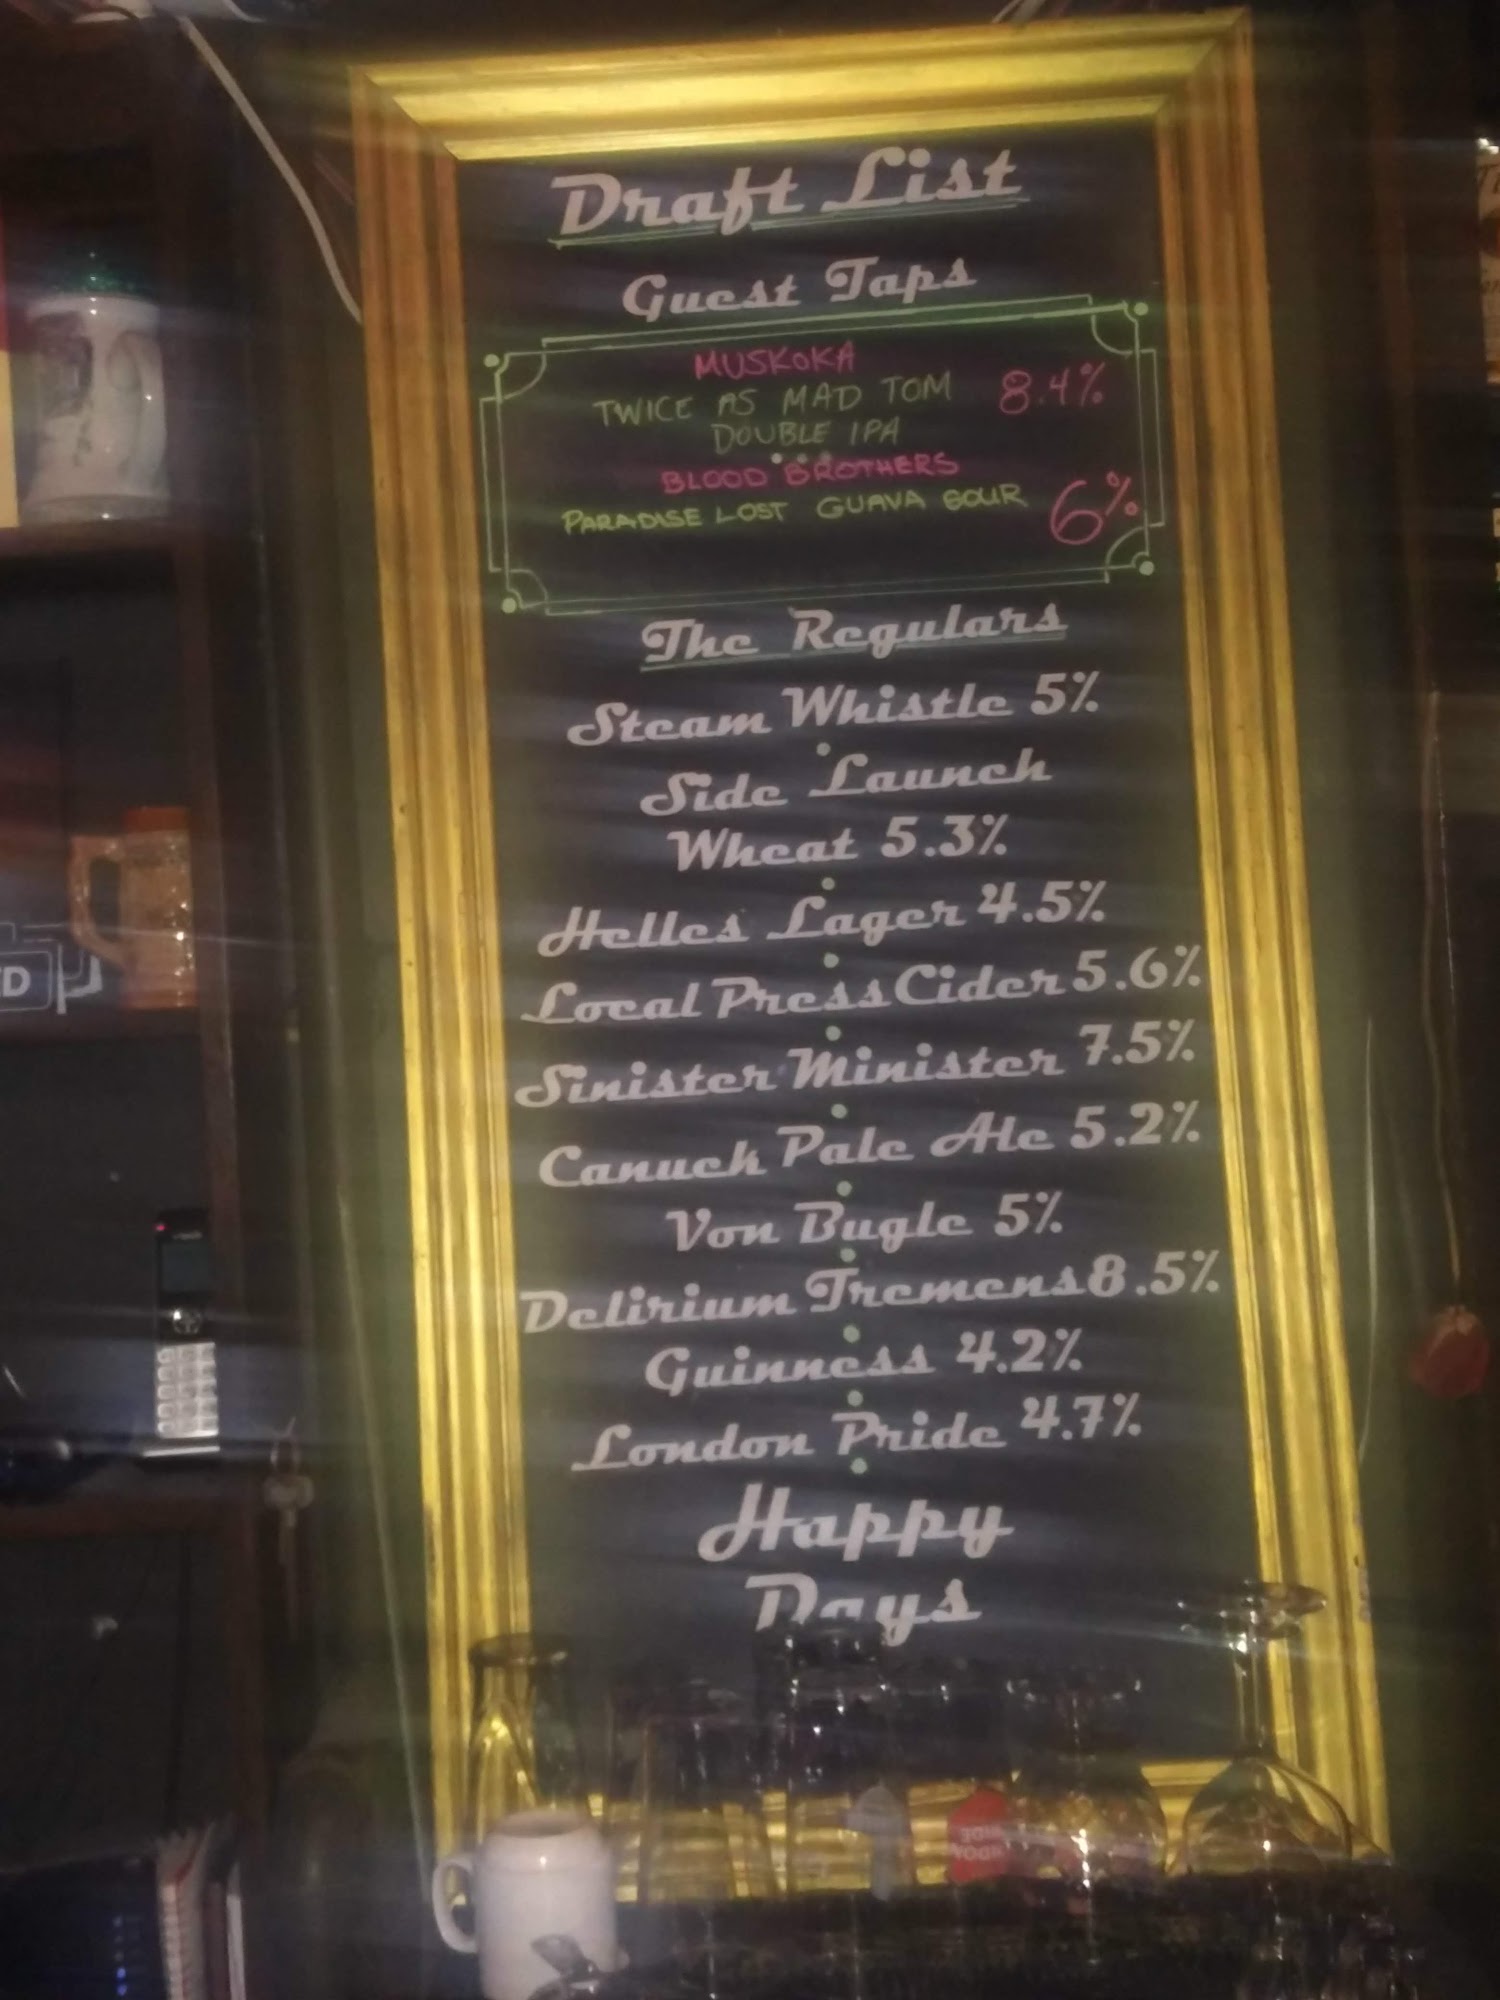 Draft List
Guest Taps
MUSKOKA
TWICE AS MAD TOM 8.4%
DOUBLE IPA
BLOOD BROTHERS
PARADISE LOST GUAVA SOUR 6%
The Regulars
Steam Whistle 5%
Side Launch
Wheat 5.3%
Helles Lager 4.5%
Local Press Cider 5.6%
Sinister Minister 7.5%
Canuck Pale Ale 5.2%
Von Bugle 5%
Delirium Tremens 8.5%
Guinness 4.2%
London Pride 4.7%
Happy
Days